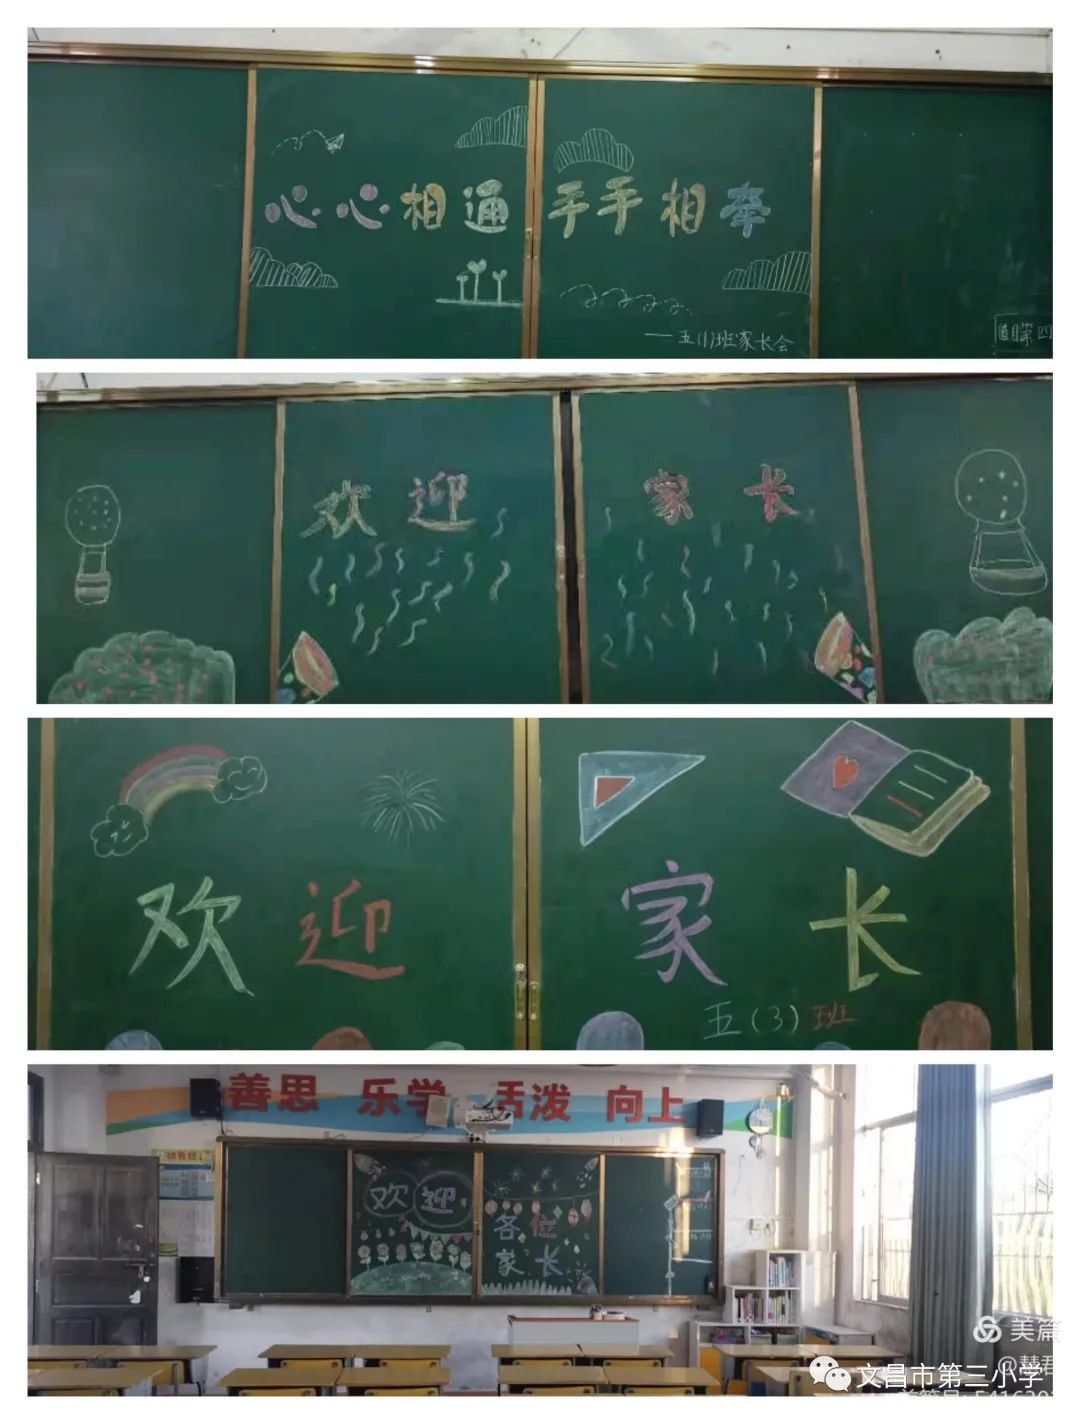 心心相通 手手相牵
——五(1)班家长会
值日 第四
欢迎 家长
欢迎 家长
五(3)班
善思 乐学 活泼 向上
欢迎
各位
家长
美篇
@慧君
文昌市第三小学